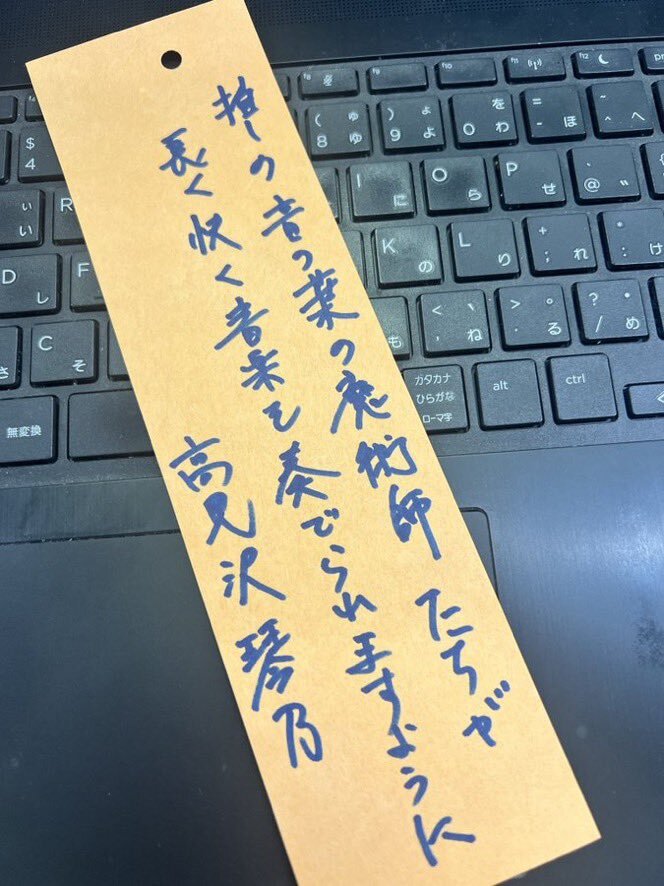 推しの音の葉の魔術師たちが
長く快く音楽を奏でられますように
高見沢琴乃
f8 f9 f10 f11 f12
$ 4 ( ゆ 8 ゆ ) よ 9 よ を 0 わ = - ほ ~ ^ へ
R I に O ら P せ ` @ ゛
D し F K の L り + ; れ * : け
C そ も < 、 , ね > 。 . る ? ・ / め
無変換 カタカナ ひらがな ローマ字 alt ctrl